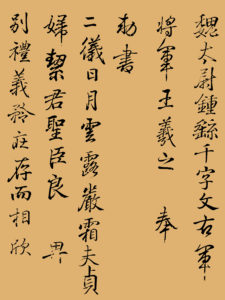 魏太尉鍾繇千字文右軍
將軍王羲之 奉
勅書
二儀日月雲露嚴霜夫貞
婦絜君聖臣良 畀
別禮義矜莊存而相欣